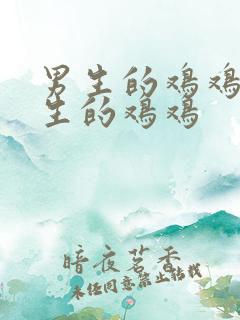 男生的鸡鸡
生的鸡鸡
暗夜茗香
未任同意禁止转载